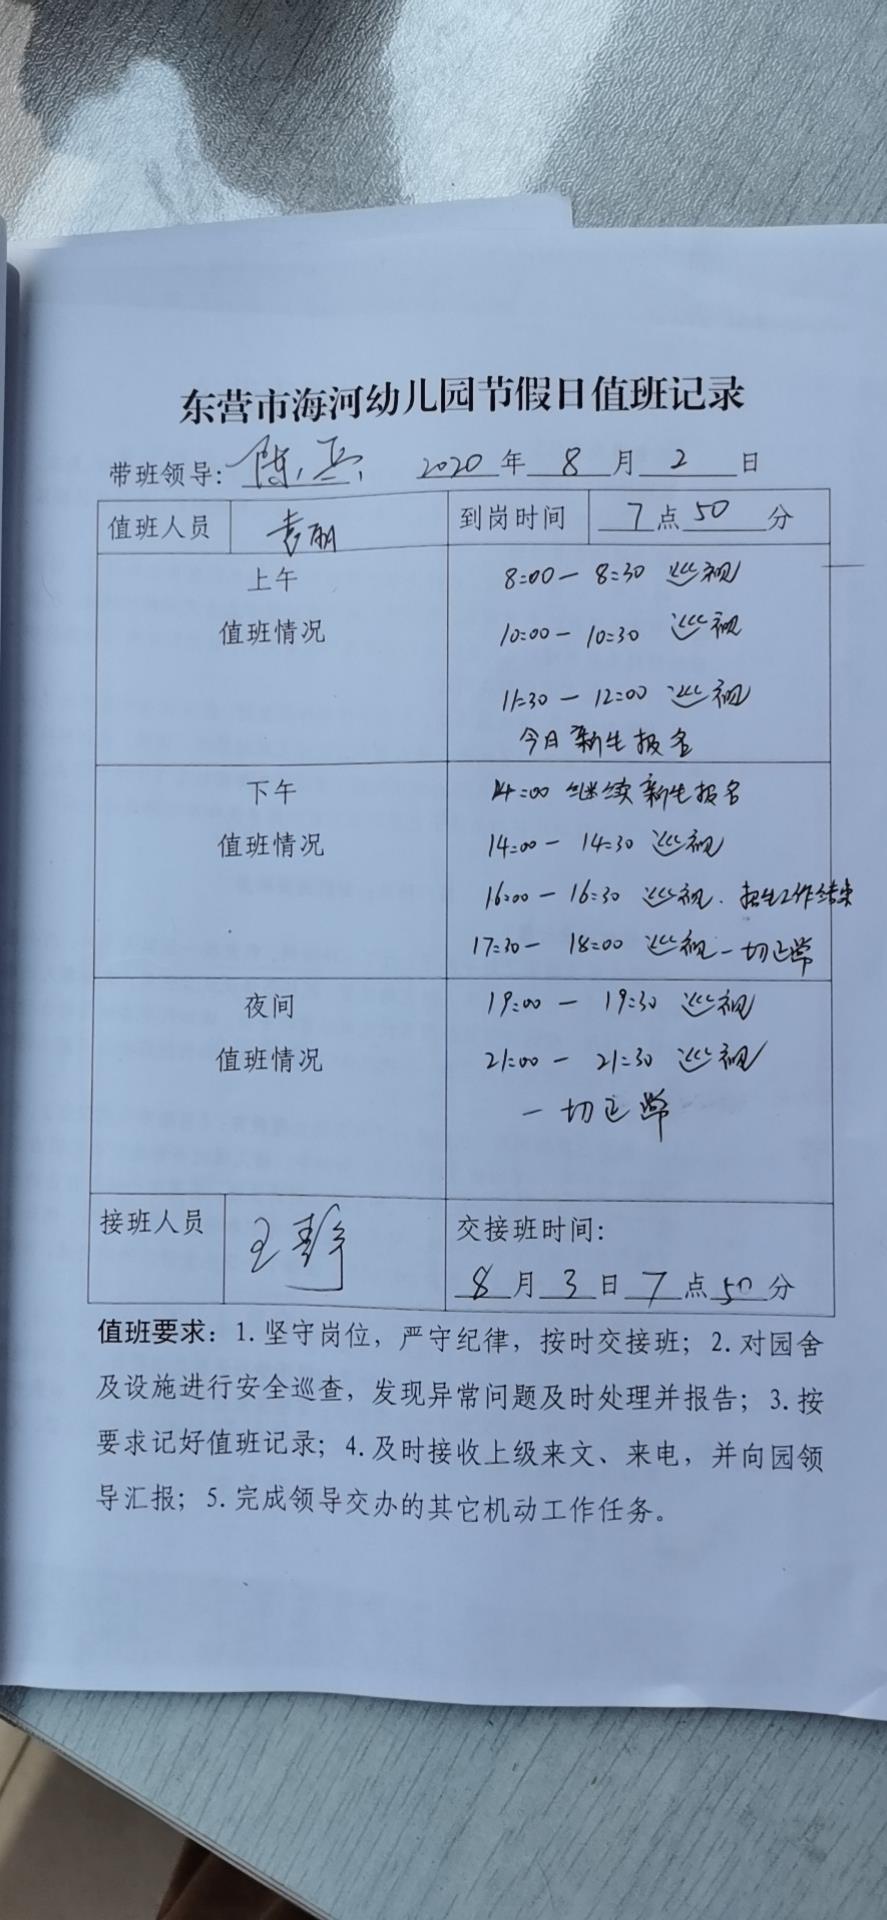 东营市海河幼儿园节假日值班记录
带班领导: 陈 2020 年 8 月 2 日
值班人员 袁丽 到岗时间 7 点 50 分
上午
值班情况
8:00 — 8:30 巡视
10:00 — 10:30 巡视
11:30 — 12:00 巡视
今日新生报名
下午
值班情况
14:00 继续新生报名
14:00 — 14:30 巡视
16:00 — 16:30 巡视. 招生工作结束
17:30 — 18:00 巡视 一切正常
夜间
值班情况
19:00 — 19:30 巡视
21:00 — 21:30 巡视
一切正常
接班人员 王静 交接班时间:
8 月 3 日 7 点 50 分
值班要求: 1. 坚守岗位, 严守纪律, 按时交接班; 2. 对园舍
及设施进行安全巡查, 发现异常问题及时处理并报告; 3. 按
要求记好值班记录; 4. 及时接收上级来文、来电, 并向园领
导汇报; 5. 完成领导交办的其它机动工作任务。